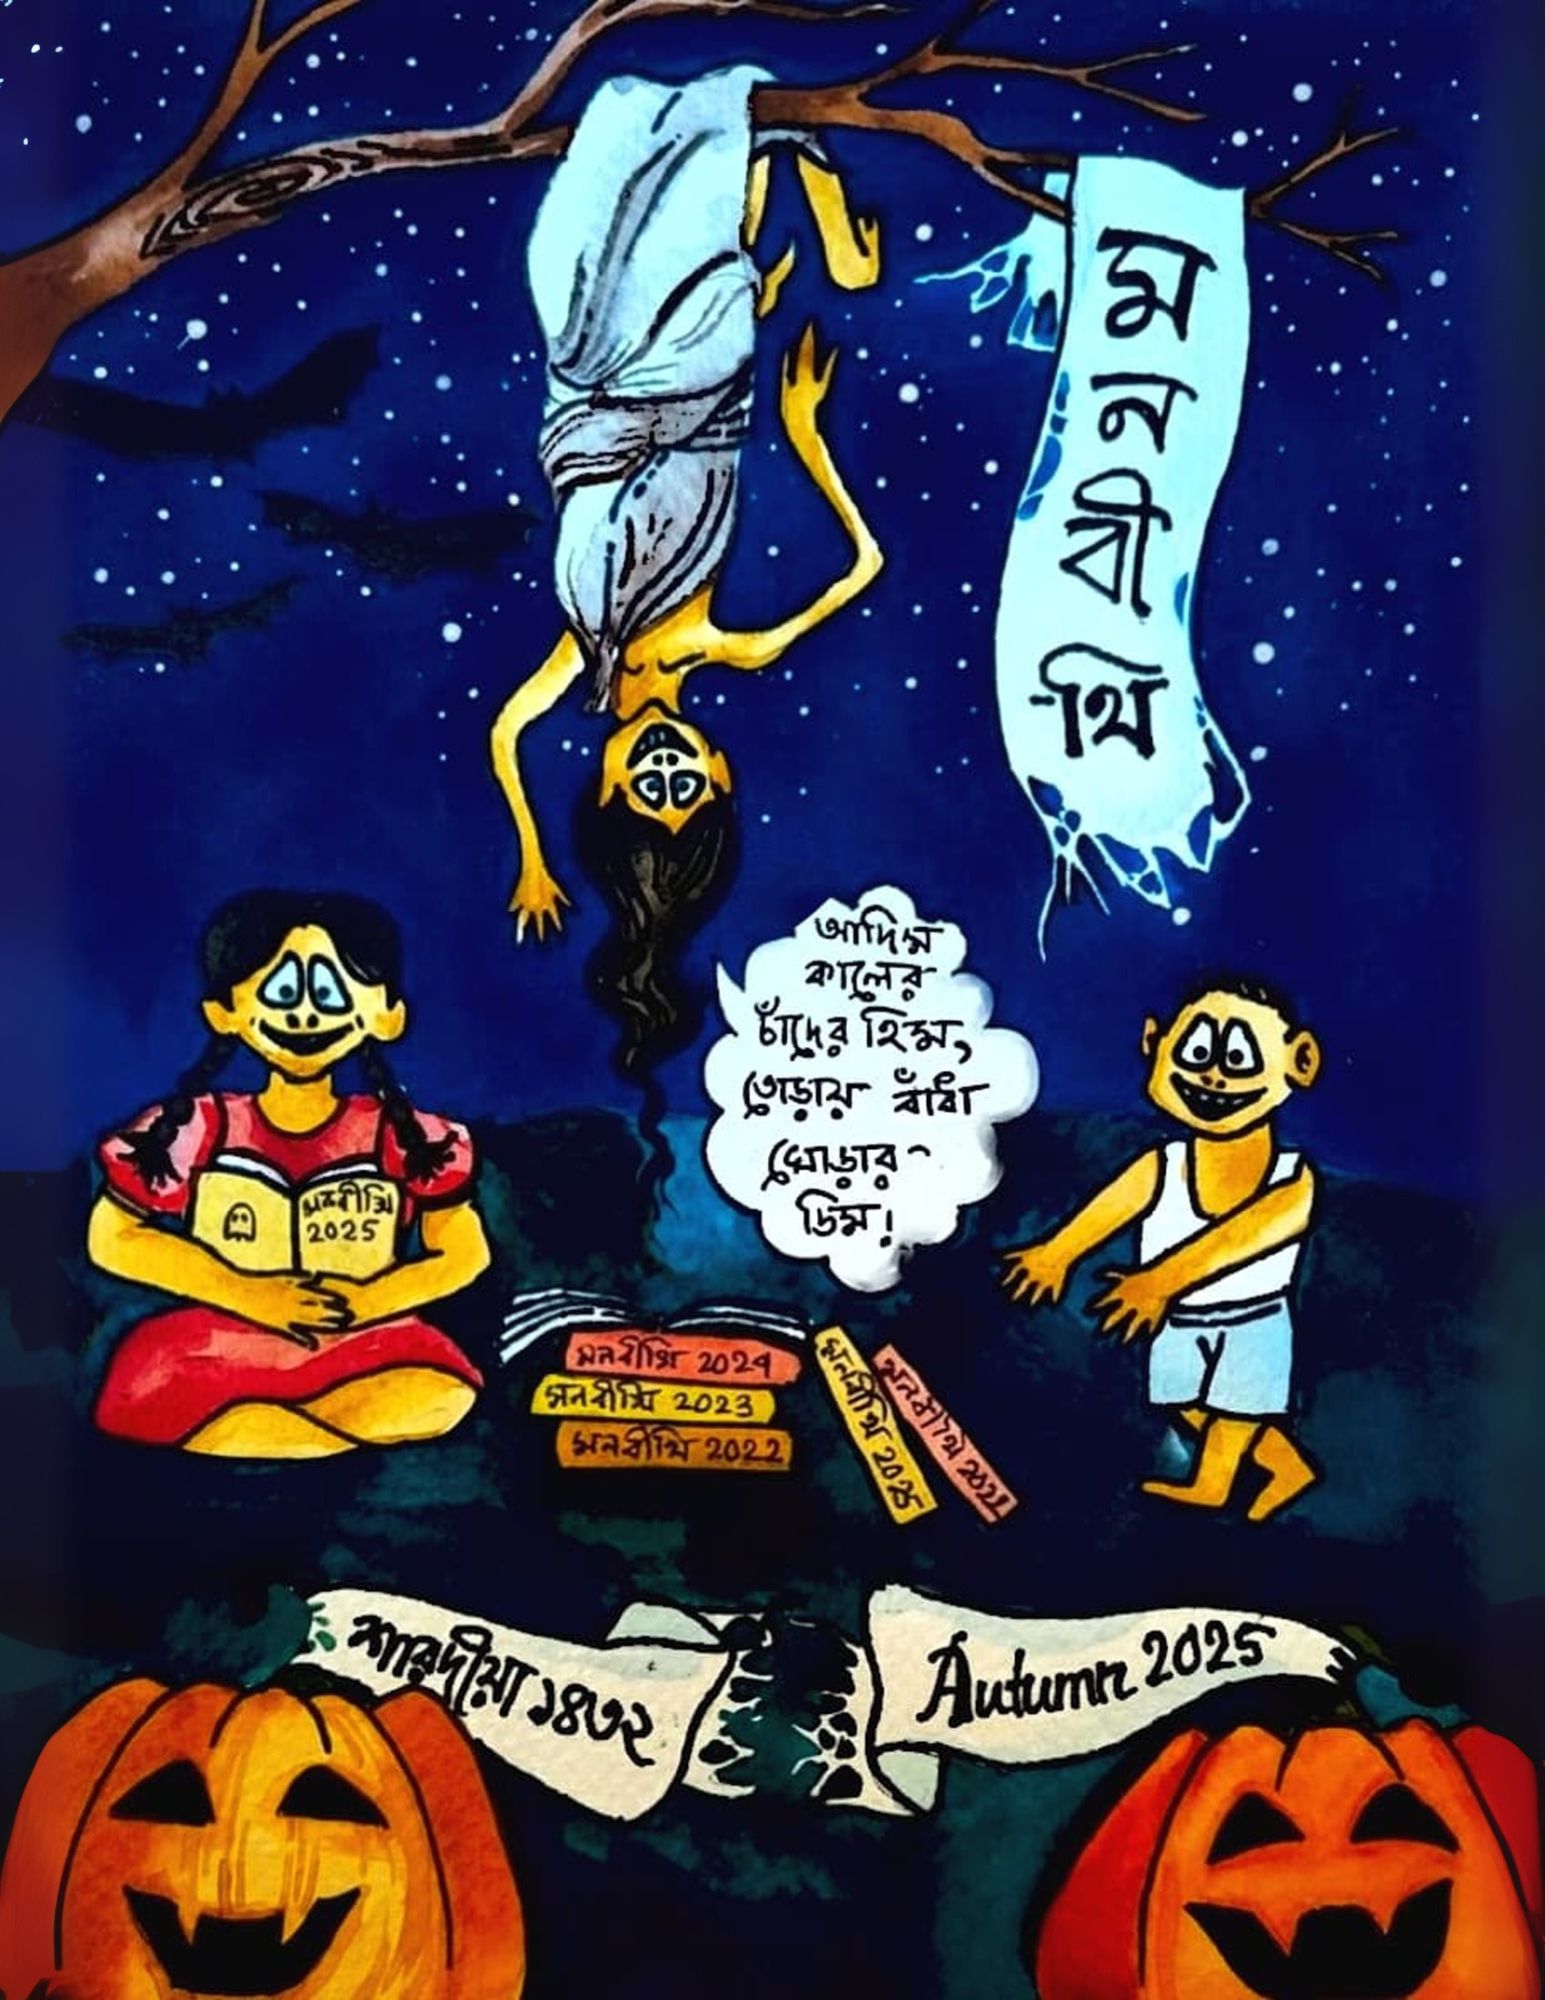 ম
ন
বী
থি
আদিম
কালের
চাঁদের হিম,
তোড়ায় বাঁধা
ঘোড়ার
ডিম!
মনবীথি
2025
মনবীথি 2024
মনবীথি 2023
মনবীথি 2022
মনবীথি
মনবীথি
শারদীয়া ১৪৩২
Autumn 2025